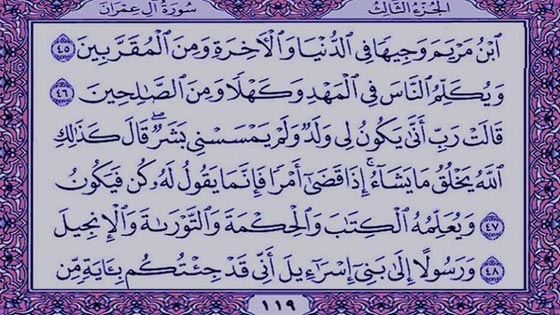 الجزء الثالث سورة آل عمران
ٱبْنُ مَرْيَمَ وَجِيهًا فِي ٱلدُّنْيَا وَٱلْآخِرَةِ وَمِنَ ٱلْمُقَرَّبِينَ ٤٥
وَيُكَلِّمُ ٱلنَّاسَ فِي ٱلْمَهْدِ وَكَهْلًا وَمِنَ ٱلصَّٰلِحِينَ ٤٦
قَالَتْ رَبِّ أَنَّىٰ يَكُونُ لِي وَلَدٌ وَلَمْ يَمْسَسْنِي بَشَرٌ ۖ قَالَ كَذَٰلِكِ
ٱللَّهُ يَخْلُقُ مَا يَشَآءُ ۚ إِذَا قَضَىٰٓ أَمْرًا فَإِنَّمَا يَقُولُ لَهُۥ كُن فَيَكُونُ
٤٧ وَيُعَلِّمُهُ ٱلْكِتَٰبَ وَٱلْحِكْمَةَ وَٱلتَّوْرَىٰةَ وَٱلْإِنجِيلَ
٤٨ وَرَسُولًا إِلَىٰ بَنِيٓ إِسْرَٰٓءِيلَ أَنِّي قَدْ جِئْتُكُم بِـَٔايَةٍ مِّن
١١٩